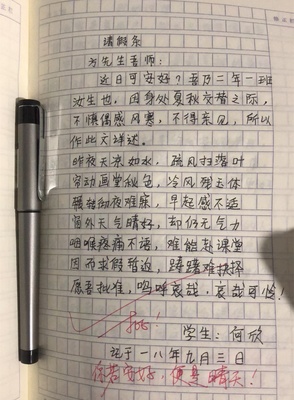 请假条
方先生吾师：
近日可安好？吾乃二年一班
汝生也，因身处夏秋交替之际，
不慎偶感风寒，不得亲见，所以
作此文详述。
昨夜天凉如水，疏风扫落叶
帘动画堂秋色，冷风残玉体
辗转彻夜难寐，早起感不适
窗外天气晴好，却仍无气力
咽喉疼痛不语，难能赴课堂
因而求假暂退，踌躇难抉择
愿吾批准，呜呼哀哉，哀哉可怜！
批！
学生：何欣
记于一八年九月三日
你若安好，便是晴天！